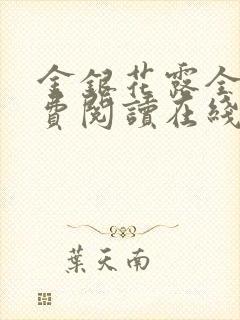 金銀花露全
費閱讀在綫
葉天南